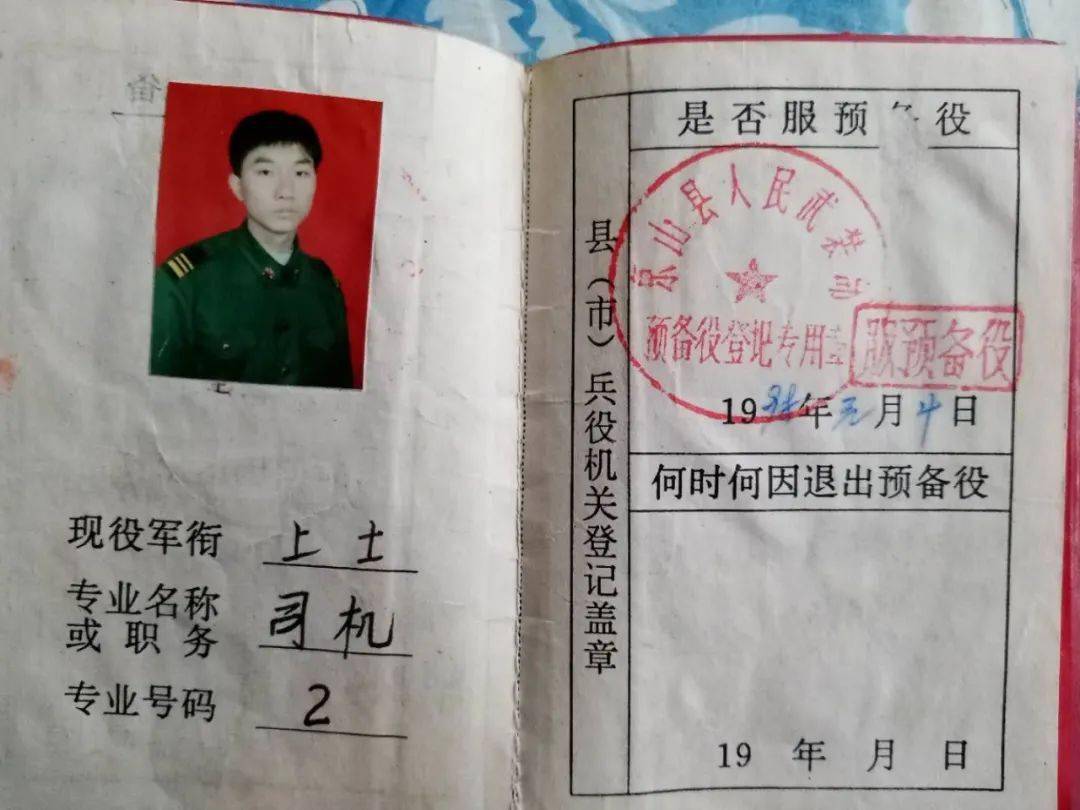 现役军衔 上士
专业名称
或职务 司机
专业号码 2
县(市)兵役机关登记盖章
是否服预 役
京山县人民武装部
预备役登记专用章
服预备役
19 年元月 日
何时何因退出预备役
19 年 月 日